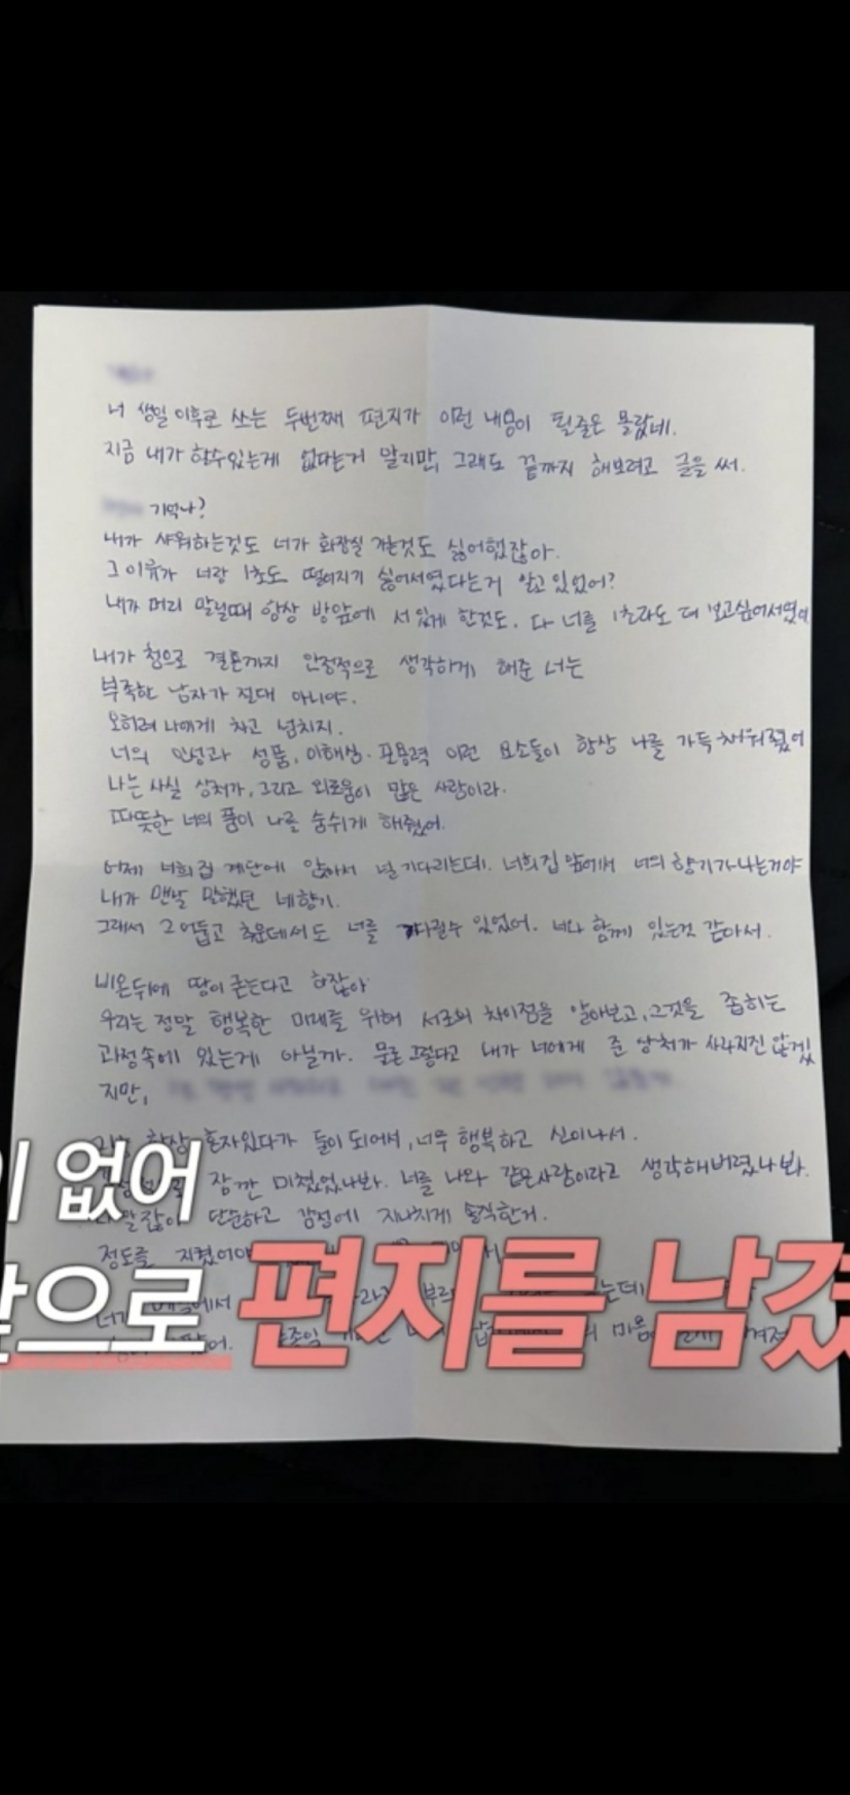 너 생일 이후로 쓰는 두번째 편지가 이런 내용이 될줄은 몰랐네.
지금 내가 할수있는게 없다는거 알지만, 그래도 끝까지 해보려고 글을 써.
기억나?
내가 샤워하는것도 너가 화장실 가는것도 싫어했잖아.
그 이유가 너랑 1초도 떨어지기 싫어서였다는거 알고있었어?
내가 머리 말릴때 항상 방앞에 서있게 한것도. 다 너를 1초라도 더 보고싶어서였어
내가 첨으로 결혼까지 안정적으로 생각하게 해준 너는
부족한 남자가 절대 아니야.
오히려 나에게 차고 넘치지.
너의 인성과 성품, 이해심. 포용력 이런 요소들이 항상 나를 가득 채워줬어
나는 사실 상처가, 그리고 외로움이 많은 사람이라.
따뜻한 너의 품이 나를 숨쉬게 해줬어.
어제 너희집 계단에 앉아서 널 기다리는데. 너희집 앞에서 너의 향기가나는거야
내가 맨날 말했던 네향기.
그래서 그 어둡고 추운데서도 너를 기다릴수 있었어. 너와 함께 있는것 같아서.
비온뒤에 땅이 굳는다고 하잖아
우리는 정말 행복한 미래를 위해 서로의 차이점을 알아보고, 그것을 좁히는
과정속에 있는게 아닐까. 물론 그렇다고 내가 너에게 준 상처가 사라지진 않겠
지만,
항상 혼자있다가 둘이 되어서, 너무 행복하고 신이나서.
잠깐 미쳤었나봐. 너를 나와 같은사람이라고 생각해버렸나봐.
알잖아 단순하고 감정에 지나치게 솔직한거.
정도를 지켰어야
이 없어
앞으로 편지를 남겼